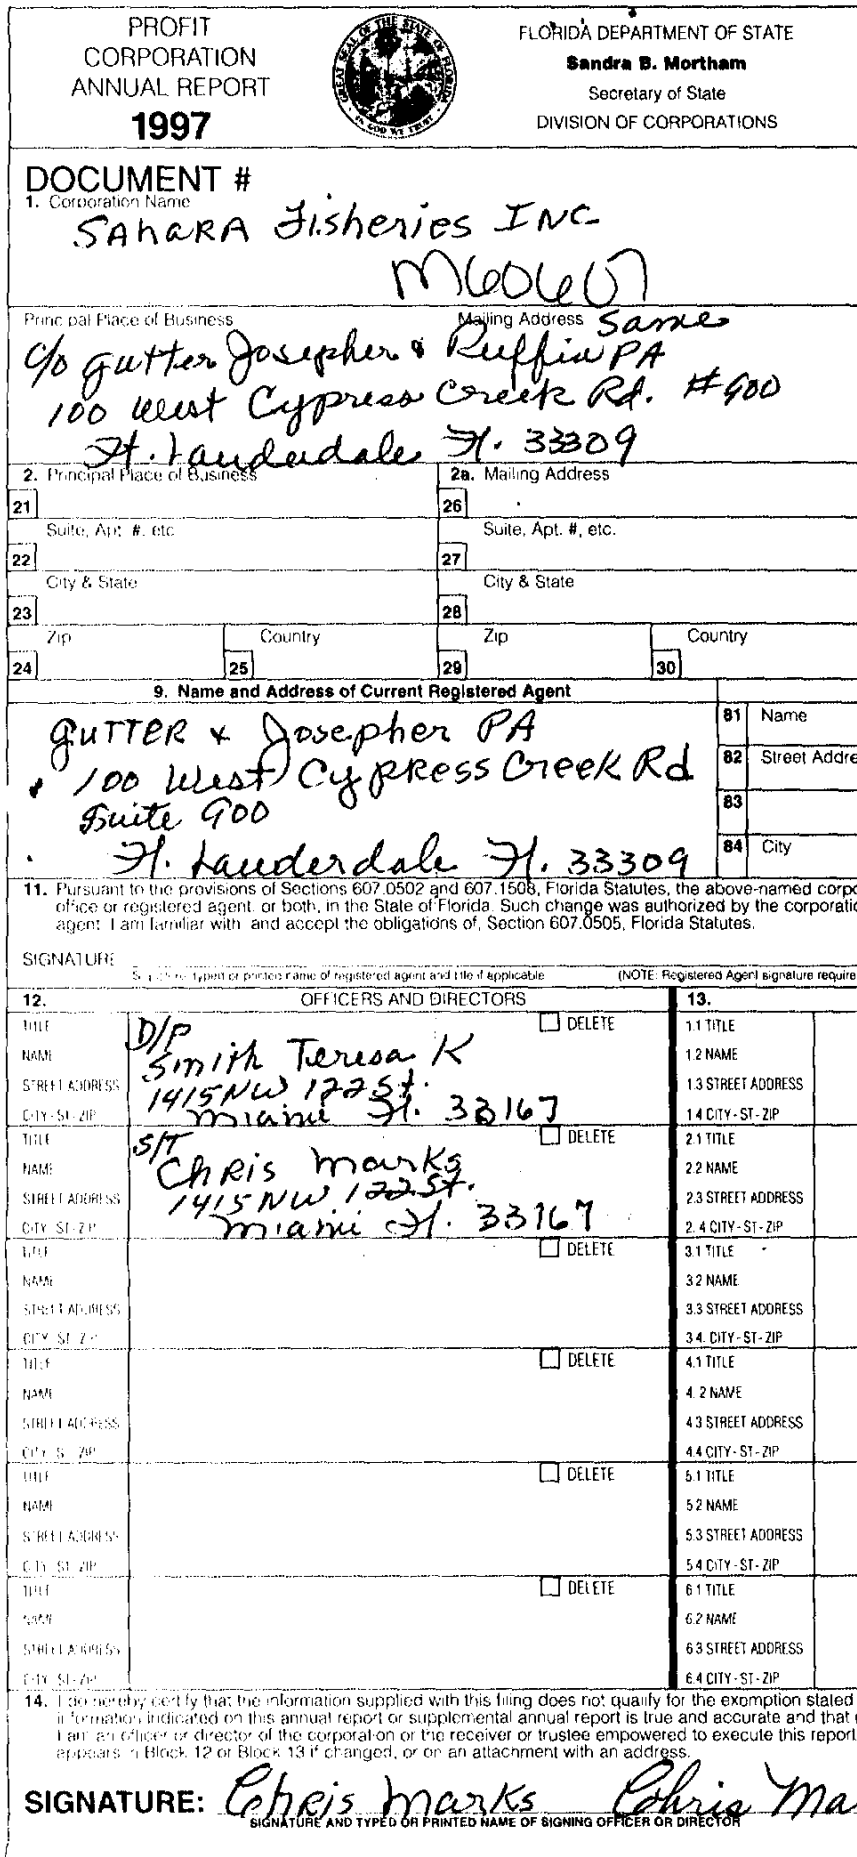 PROFIT
CORPORATION
ANNUAL REPORT
1997
GREAT SEAL OF THE STATE OF FLORIDA
IN GOD WE TRUST
FLORIDA DEPARTMENT OF STATE
Sandra B. Mortham
Secretary of State
DIVISION OF CORPORATIONS
DOCUMENT #
1. Corporation Name
SAhaRA Fisheries INC
M60607
Principal Place of Business
Mailing Address Same
c/o Gutter Josepher & Ruffin PA
100 West Cypress Creek Rd. #900
Ft. Lauderdale Fl. 33309
2. Principal Place of Business
2a. Mailing Address
21
26
Suite, Apt. #, etc.
Suite, Apt. #, etc.
22
27
City & State
City & State
23
28
Zip
Country
Zip
Country
24
25
29
30
9. Name and Address of Current Registered Agent
GUTTER & Josepher PA
100 West Cypress Creek Rd
Suite 900
Ft. Lauderdale Fl. 33309
81 Name
82 Street Addre
83
84 City
11. Pursuant to the provisions of Sections 607.0502 and 607.1508, Florida Statutes, the above-named corpo
office or registered agent, or both, in the State of Florida. Such change was authorized by the corporatio
agent. I am familiar with, and accept the obligations of, Section 607.0505, Florida Statutes.
SIGNATURE
Signature, typed or printed name of registered agent and title if applicable
(NOTE: Registered Agent signature require
12. OFFICERS AND DIRECTORS
13.
TITLE D/P DELETE 1.1 TITLE
NAME Smith Teresa K 1.2 NAME
STREET ADDRESS 1415 NW 122 St. 1.3 STREET ADDRESS
CITY-ST-ZIP Miami Fl. 33167 1.4 CITY-ST-ZIP
TITLE S/T DELETE 2.1 TITLE
NAME Chris Marks 2.2 NAME
STREET ADDRESS 1415 NW 122 St. 2.3 STREET ADDRESS
CITY-ST-ZIP Miami Fl. 33167 2.4 CITY-ST-ZIP
TITLE DELETE 3.1 TITLE
NAME 3.2 NAME
STREET ADDRESS 3.3 STREET ADDRESS
CITY-ST-ZIP 3.4. CITY-ST-ZIP
TITLE DELETE 4.1 TITLE
NAME 4.2 NAME
STREET ADDRESS 4.3 STREET ADDRESS
CITY-ST-ZIP 4.4 CITY-ST-ZIP
TITLE DELETE 5.1 TITLE
NAME 5.2 NAME
STREET ADDRESS 5.3 STREET ADDRESS
CITY-ST-ZIP 5.4 CITY-ST-ZIP
TITLE DELETE 6.1 TITLE
NAME 6.2 NAME
STREET ADDRESS 6.3 STREET ADDRESS
CITY-ST-ZIP 6.4 CITY-ST-ZIP
14. I do hereby certify that the information supplied with this filing does not qualify for the exemption stated
information indicated on this annual report or supplemental annual report is true and accurate and that
I am an officer or director of the corporation or the receiver or trustee empowered to execute this report
appears in Block 12 or Block 13 if changed, or on an attachment with an address.
SIGNATURE: Chris Marks Chris Ma
SIGNATURE AND TYPED OR PRINTED NAME OF SIGNING OFFICER OR DIRECTOR